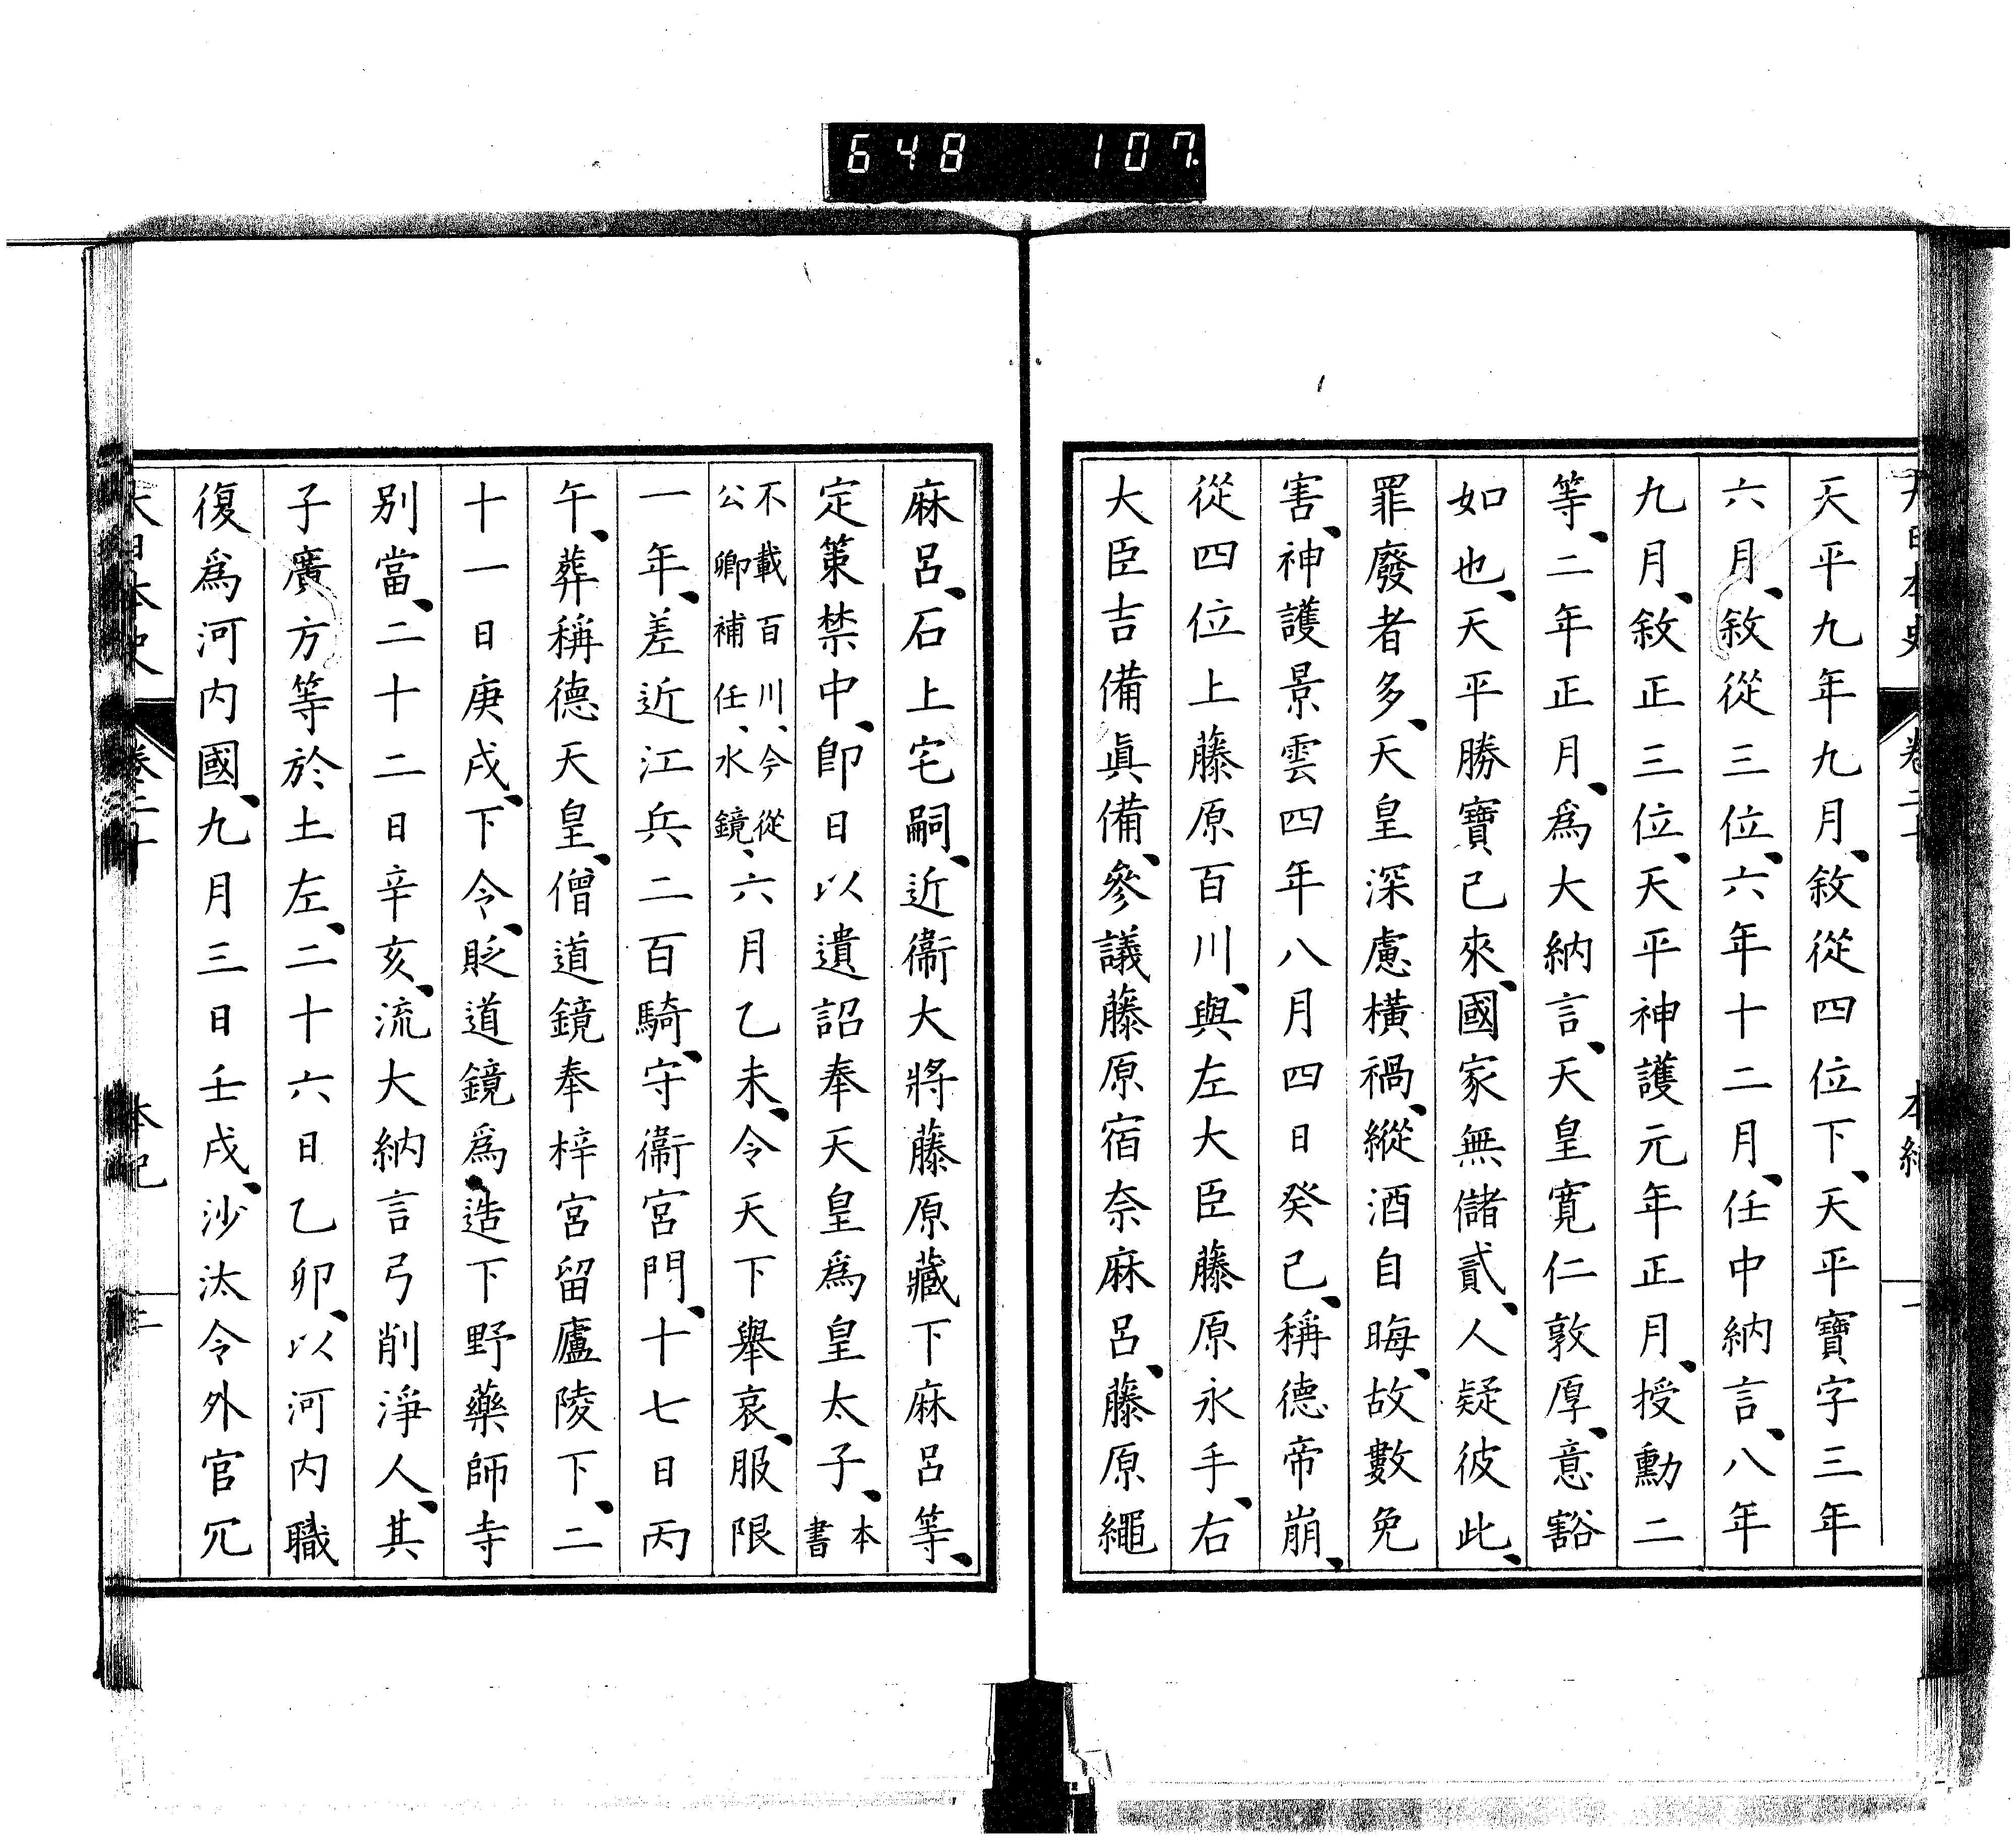 648 107
大日本史 卷二十 本紀
天平九年九月、敘從四位下、天平寶字三年
六月、敘從三位、六年十二月、任中納言、八年
九月、敘正三位、天平神護元年正月、授勳二
等、二年正月、爲大納言、天皇寛仁敦厚、意豁
如也、天平勝寶已來、國家無儲貳、人疑彼此、
罪廢者多、天皇深慮橫禍、縱酒自晦、故數免
害、神護景雲四年八月四日癸巳、稱德帝崩、
從四位上藤原百川、與左大臣藤原永手、右
大臣吉備眞備、參議藤原宿奈麻呂、藤原繩
麻呂、石上宅嗣、近衞大將藤原藏下麻呂等、
定策禁中、卽日以遺詔奉天皇爲皇太子、本書
不載百川、今從公卿補任、水鏡、六月乙未、令天下擧哀、服限
一年、差近江兵二百騎、守衞宮門、十七日丙
午、葬稱德天皇、僧道鏡奉梓宮留廬陵下、二
十一日庚戌、下令、貶道鏡爲造下野藥師寺
別當、二十二日辛亥、流大納言弓削淨人、其
子廣方等於土左、二十六日乙卯、以河內職
復爲河內國、九月三日壬戌、沙汰令外官冗
大日本史 卷二十 本紀 三